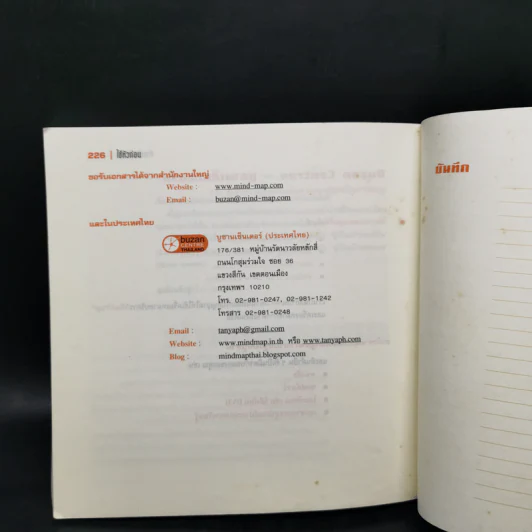 226 | ใช้หัวลุย
ขอรับเอกสารได้จากสำนักงานใหญ่
Website : www.mind-map.com
Email : buzan@mind-map.com
และในประเทศไทย
buzan
THAILAND
บูซานเซ็นเตอร์ (ประเทศไทย)
176/381 หมู่บ้านรัตนาวลัยหลักสี่
ถนนโกสุมร่วมใจ ซอย 36
แขวงสีกัน เขตดอนเมือง
กรุงเทพฯ 10210
โทร. 02-981-0247, 02-981-1242
โทรสาร 02-981-0248
Email : tanyaph@gmail.com
Website : www.mindmap.in.th หรือ www.tanyaph.com
Blog : mindmapthai.blogspot.com
บันทึก